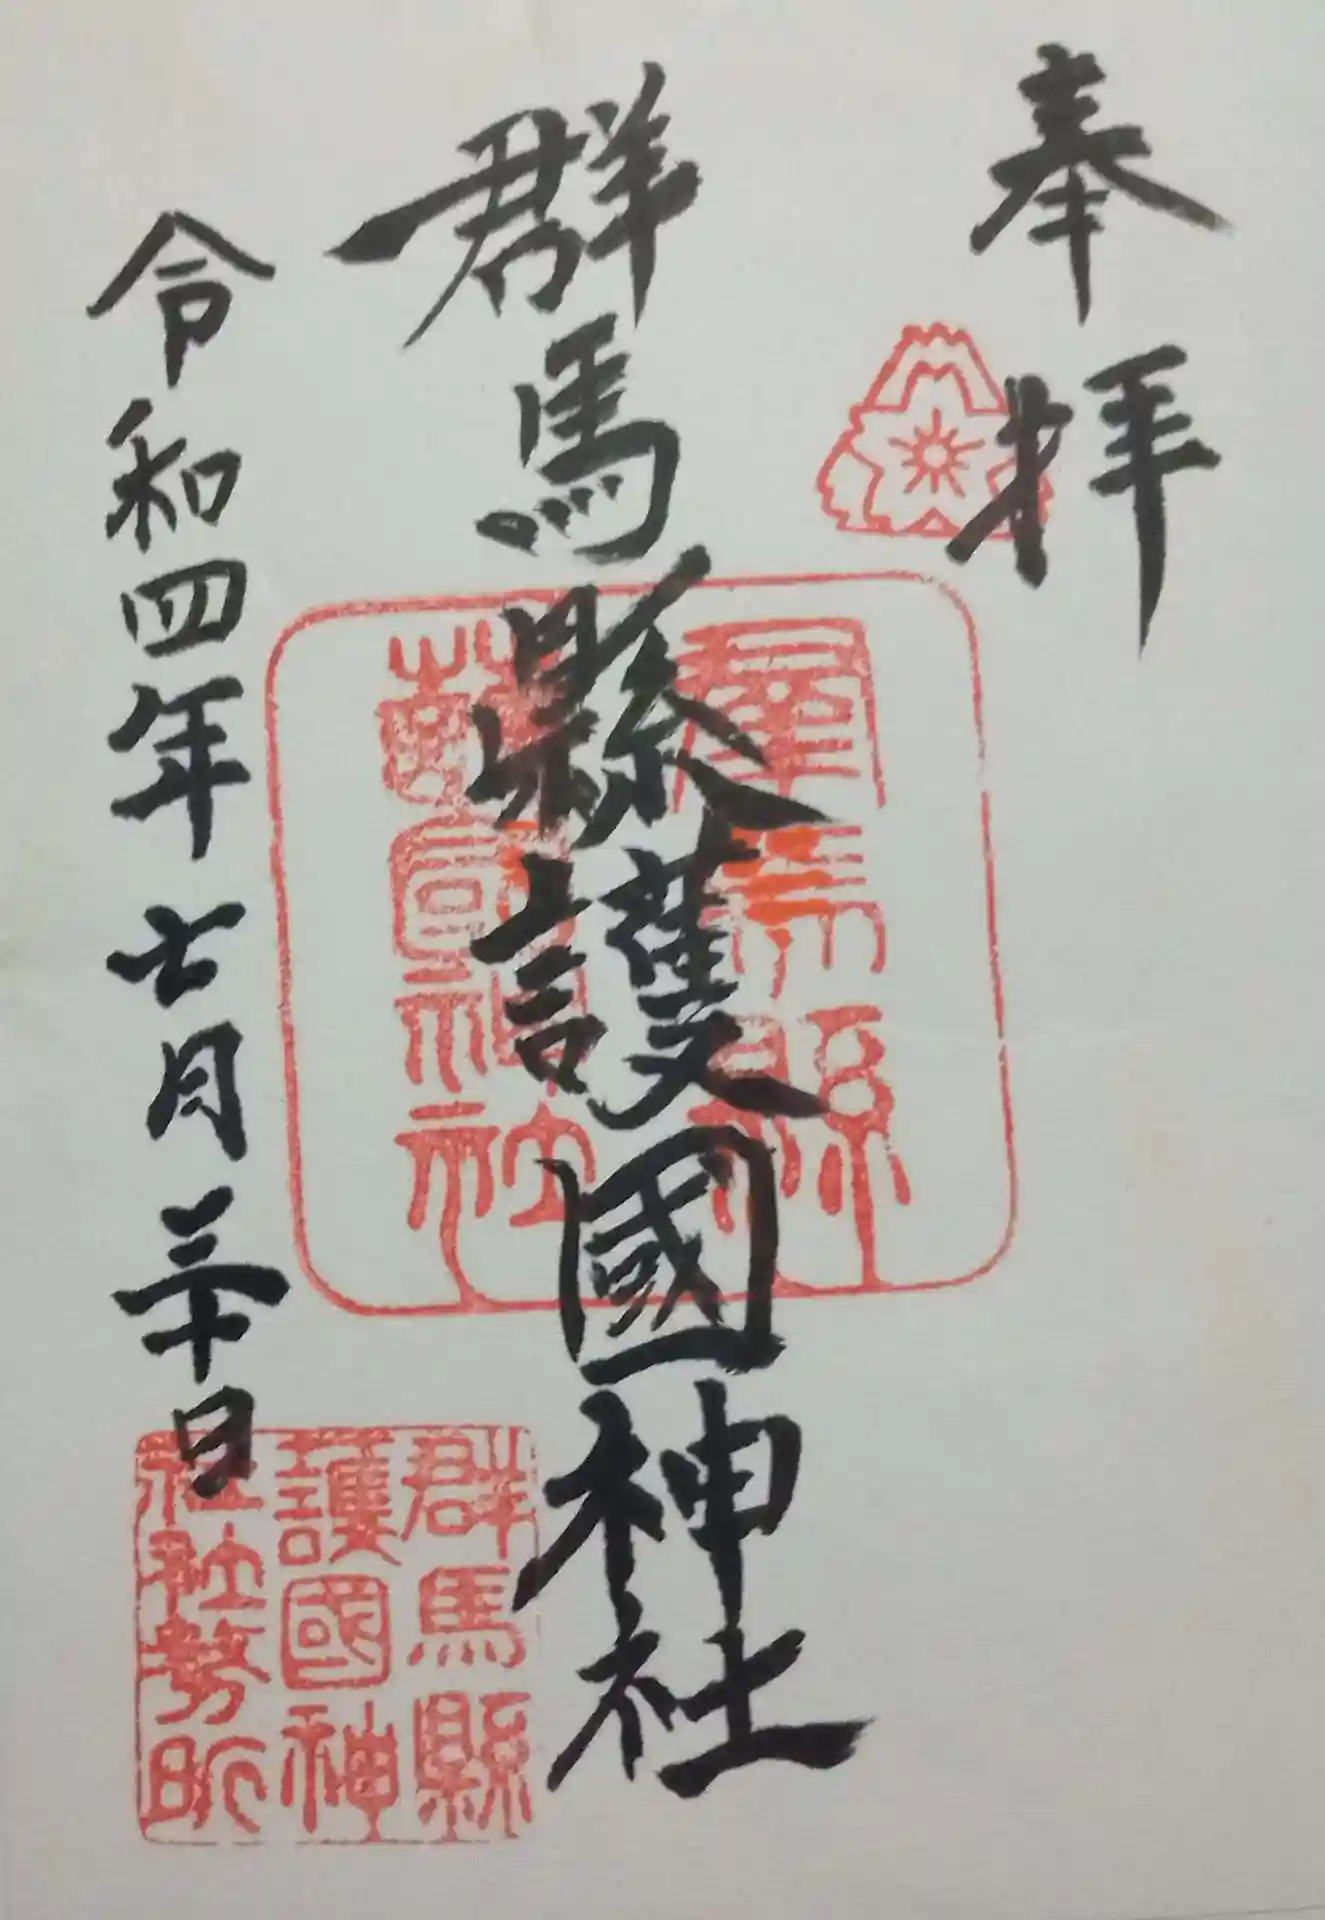 奉拝
群馬縣護國神社
令和四年七月三十日
群馬縣
護國神社
群馬縣
護國神
社社務所